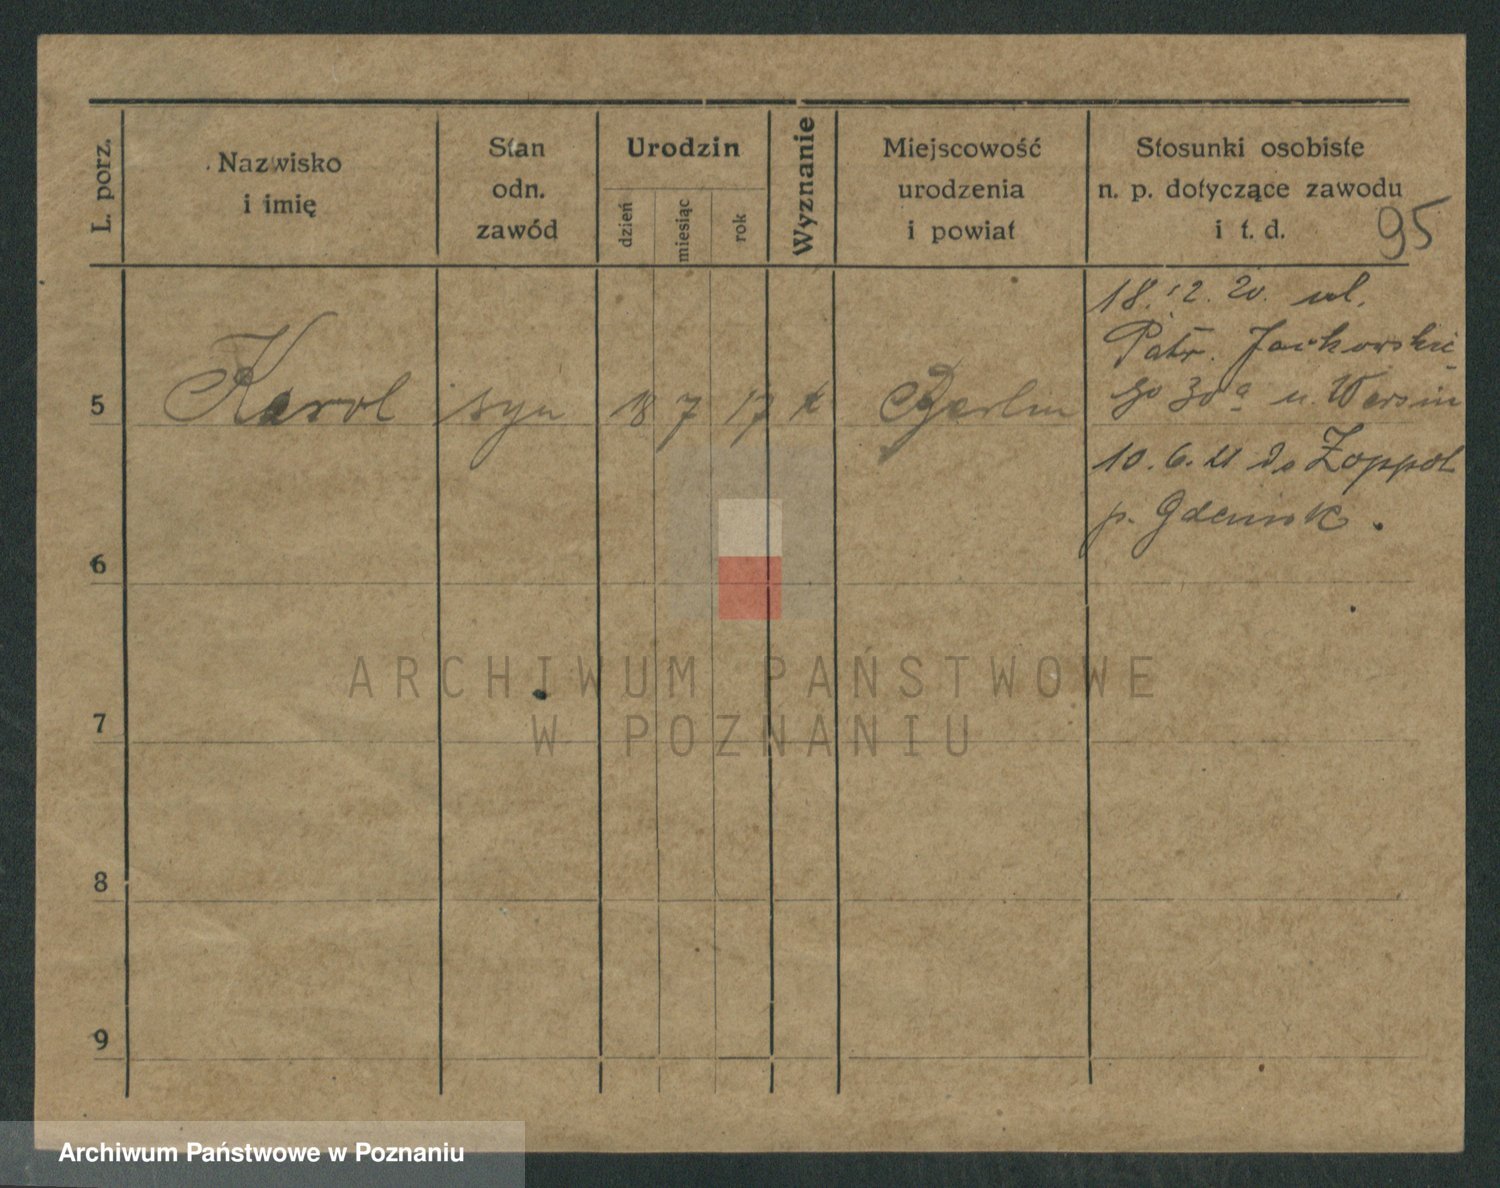 L. porz.
Nazwisko
i imię
Stan
odn.
zawód
Urodzin
dzień
miesiąc
rok
Wyznanie
Miejscowość
urodzenia
i powiat
Stosunki osobiste
n. p. dotyczące zawodu
i t. d.
95
5
Karol
syn
18
7
17
k
Berlin
18.12.20. ul.
Patr. Jackowskie
go 30a u.
10.6.21 do Zoppot
p. Gdańsk.
6
7
8
9
ARCHIWUM PAŃSTWOWE
W POZNANIU
Archiwum Państwowe w Poznaniu